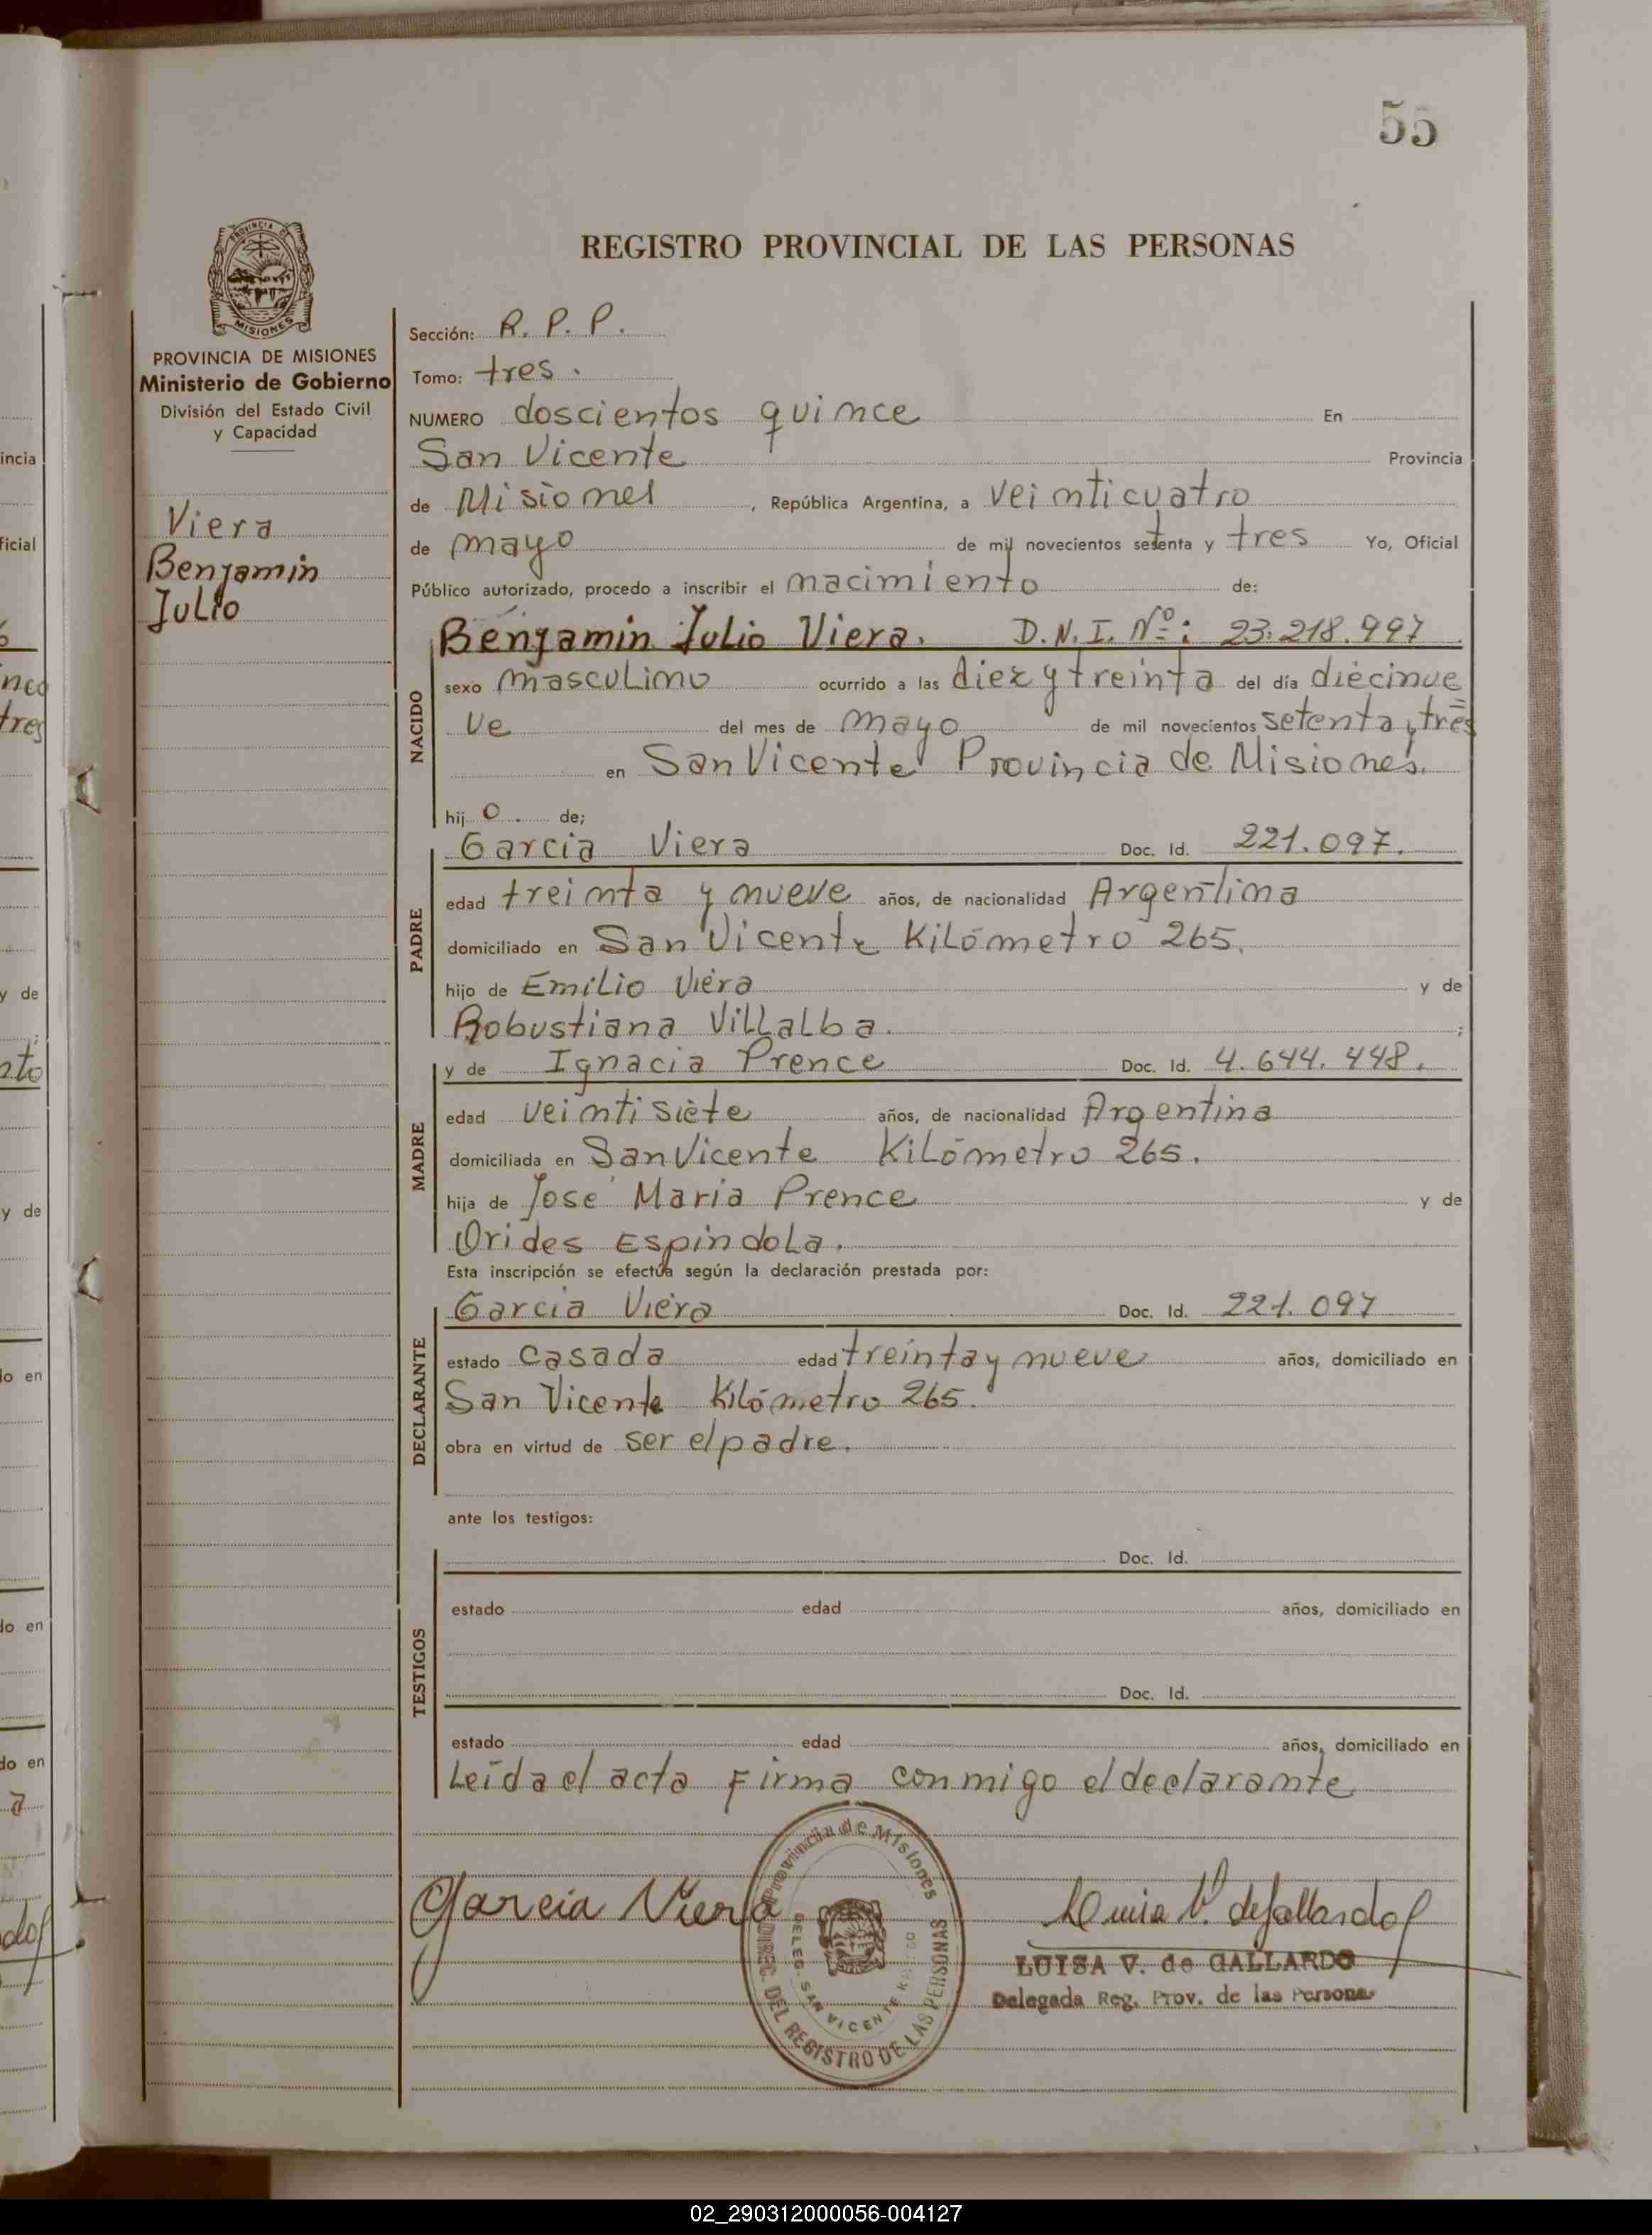 55
REGISTRO PROVINCIAL DE LAS PERSONAS
PROVINCIA DE
MISIONES
PROVINCIA DE MISIONES
Ministerio de Gobierno
División del Estado Civil
y Capacidad
Viera
Benjamin
Julio
Sección: R. P. P.
Tomo: tres.
NUMERO doscientos quince En
San Vicente Provincia
de Misiones, República Argentina, a veinticuatro
de mayo de mil novecientos setenta y tres Yo, Oficial
Público autorizado, procedo a inscribir el nacimiento de:
Benjamin Julio Viera. D.N.I. Nº: 23.218.997
NACIDO
sexo masculino ocurrido a las diez y treinta del día diecinue=
ve del mes de mayo de mil novecientos setenta y tres
en San Vicente Provincia de Misiones.
hijo. de;
PADRE
Garcia Viera Doc. Id. 221.097.
edad treinta y nueve años, de nacionalidad Argentina
domiciliado en San Vicente Kilómetro 265.
hijo de Emilio Viera y de
Robustiana Villalba. ;
MADRE
y de Ignacia Prence Doc. Id. 4.644.448.
edad veintisiete años, de nacionalidad Argentina
domiciliada en San Vicente Kilómetro 265.
hija de José Maria Prence y de
Orides Espindola.
Esta inscripción se efectúa según la declaración prestada por:
DECLARANTE
Garcia Viera Doc. Id. 221.097
estado casada edad treinta y nueve años, domiciliado en
San Vicente Kilómetro 265.
obra en virtud de ser el padre.
ante los testigos:
TESTIGOS
Doc. Id.
estado edad años, domiciliado en
Doc. Id.
estado edad años, domiciliado en
Leída el acta firma conmigo el declarante
Garcia Viera
Provincia de Misiones
DIREC. DEL REGISTRO DE LAS PERSONAS
DELEG. SAN VICENTE
Luisa V. de Gallardo
LUISA V. de GALLARDO
Delegada Reg. Prov. de las Personas
incia
ficial
nco
tres
y de
nto
y de
do en
do en
do en
a
02_290312000056-004127